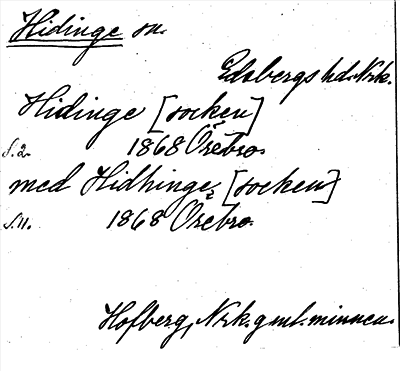 Hidinge sn.
Edsbergs hd. Nrk.
Hidinge [socken]
S.2. 1868 Örebro.
med Hidhinge [socken]
S.11. 1868 Örebro.
Hofberg, Nrk. gml. minnen.